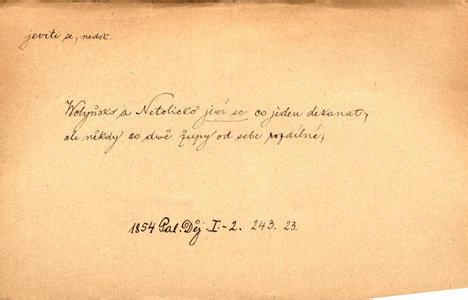 jeviti se, nedok.
Wolyňsko a Netolicko jewí se co jeden dekanat,
ale někdy co dwě župy od sebe rozdílné;
1854 Pal. Děj I.-2. 243. 23.